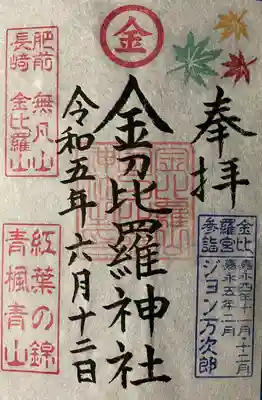 金
奉拝
金比羅宮
参詣
嘉永四年十一月・十二月
嘉永五年二月
ジョン万次郎
金刀毘羅神社
令和五年六月十二日
肥前 無凡山
長崎 金比羅山
紅葉の錦
青楓青山